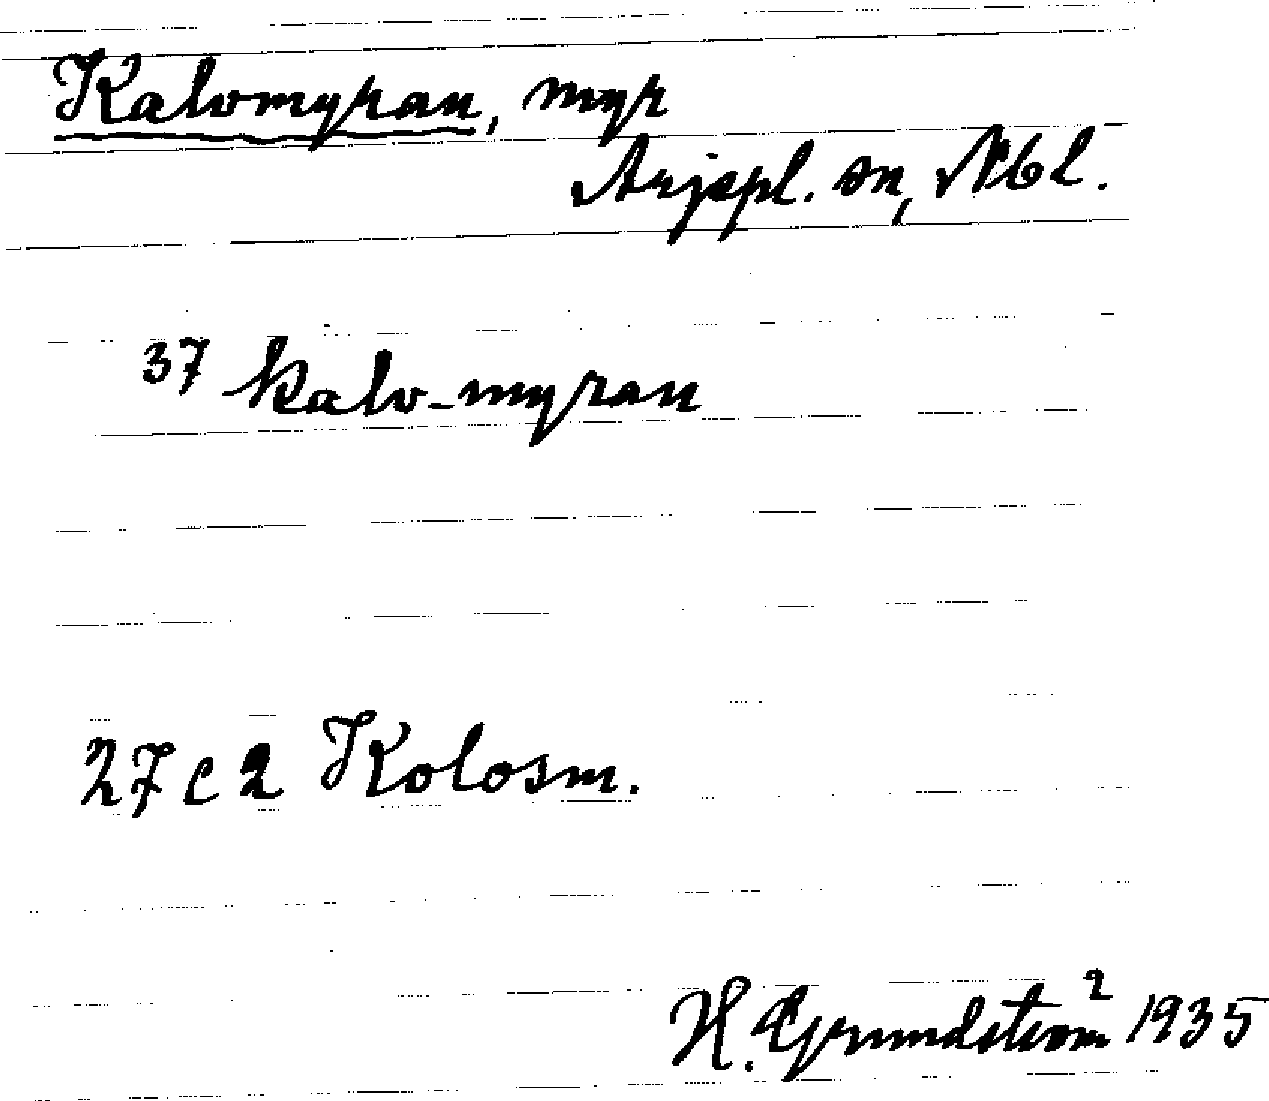 Kalvmyran, myr
Arjepl. sn, Nbl.
37 kalv-myran
27 c 2 Kolosm.
H. Grundström 2 1935